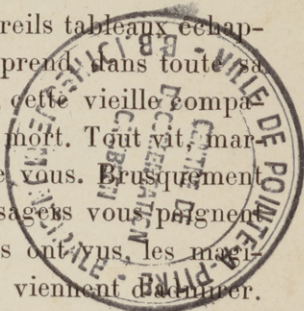 reils tableaux échap-
prend dans toute sa
cette vieille compa-
mort. Tout vit, mar-
e vous. Brusquement
sagers vous peignent
s ont vus, les magi-
viennent d'admirer.
VILLE DE POINTE-A-PITRE
CENTRE DE
DOCUMENTATION